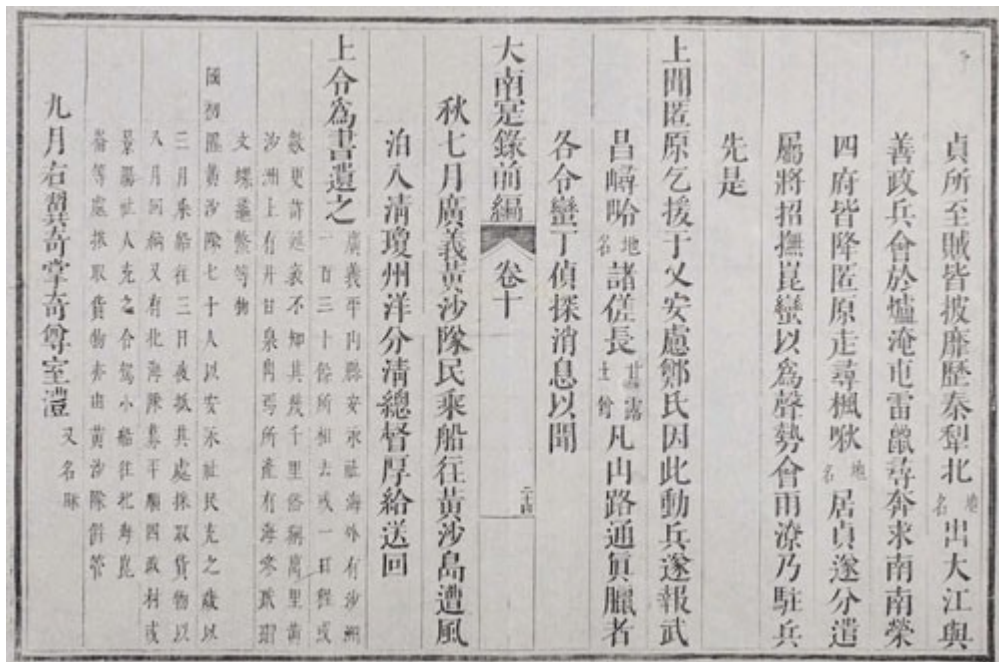 貞所至賊皆披靡歷秦犁北地名出大江與
善政兵會於爐淹屯雷巤尋奔求南南榮
四府皆降匿原走尋楓啾地名居貞遂分遣
屬將招撫崑蠻以爲聲勢會雨潦乃駐兵
先是
上聞匿原乞援于乂安慮鄭氏因此動兵遂報武
昌㠊哈地名諸㑪長甘露土酋凡山路通眞臘者
各令蠻丁偵探消息以聞
大南寔錄前編 卷十 二十四
秋七月廣義黃沙隊民乘船往黃沙島遭風
泊入清瓊州洋分清總督厚給送回
上令爲書遺之
廣義平山縣安永社海外有沙洲
一百三十餘所相去或一日程或
數更許延袤不知其幾千里俗稱萬里黃
沙洲上有井甘泉出焉所產有海參玳瑁
文螺黿鱉等物
國初置黃沙隊七十人以安永社民充之歲以
三月乘船往三日夜抵其處採取貨物以
八月回納又有北海隊募平順四政村或
景陽社人充之令駕小船往北海崑
崙等處採取貨物亦由黃沙隊併管
九月右翼奇掌奇尊室澧又名